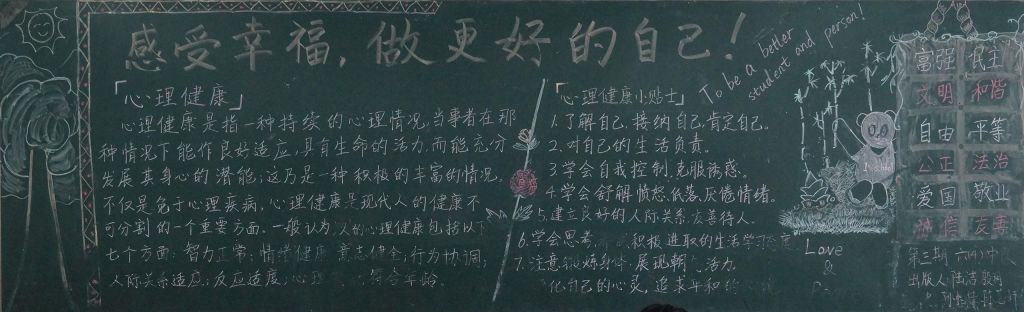 感受幸福，做更好的自己！
「心理健康」
心理健康是指一种持续的心理情况，当事者在那
种情况下能作良好适应，具有生命的活力，而能充分
发展其身心的潜能；这乃是一种积极的丰富的情况。
不仅是免于心理疾病。心理健康是现代人的健康不
可分割的一个重要方面。一般认为，人的心理健康包括以下
七个方面：智力正常；情绪健康；意志健全；行为协调；
人际关系适应；反应适度；心理 符合年龄。
「心理健康小贴士」
1.了解自己，接纳自己，肯定自己。
2.对自己的生活负责。
3.学会自我控制，克服诱惑。
4.学会舒解愤怒、低落、厌倦情绪。
5.建立良好的人际关系，友善待人。
6.学会思考， 积极进取的生活学习态度
7.注意锻炼身体，展现朝气活力
化自己的心灵，追求平和的心
To be a better
student and person!
富强 民主
文明 和谐
自由 平等
公正 法治
爱国 敬业
诚信 友善
Love
&
第三期
出版人